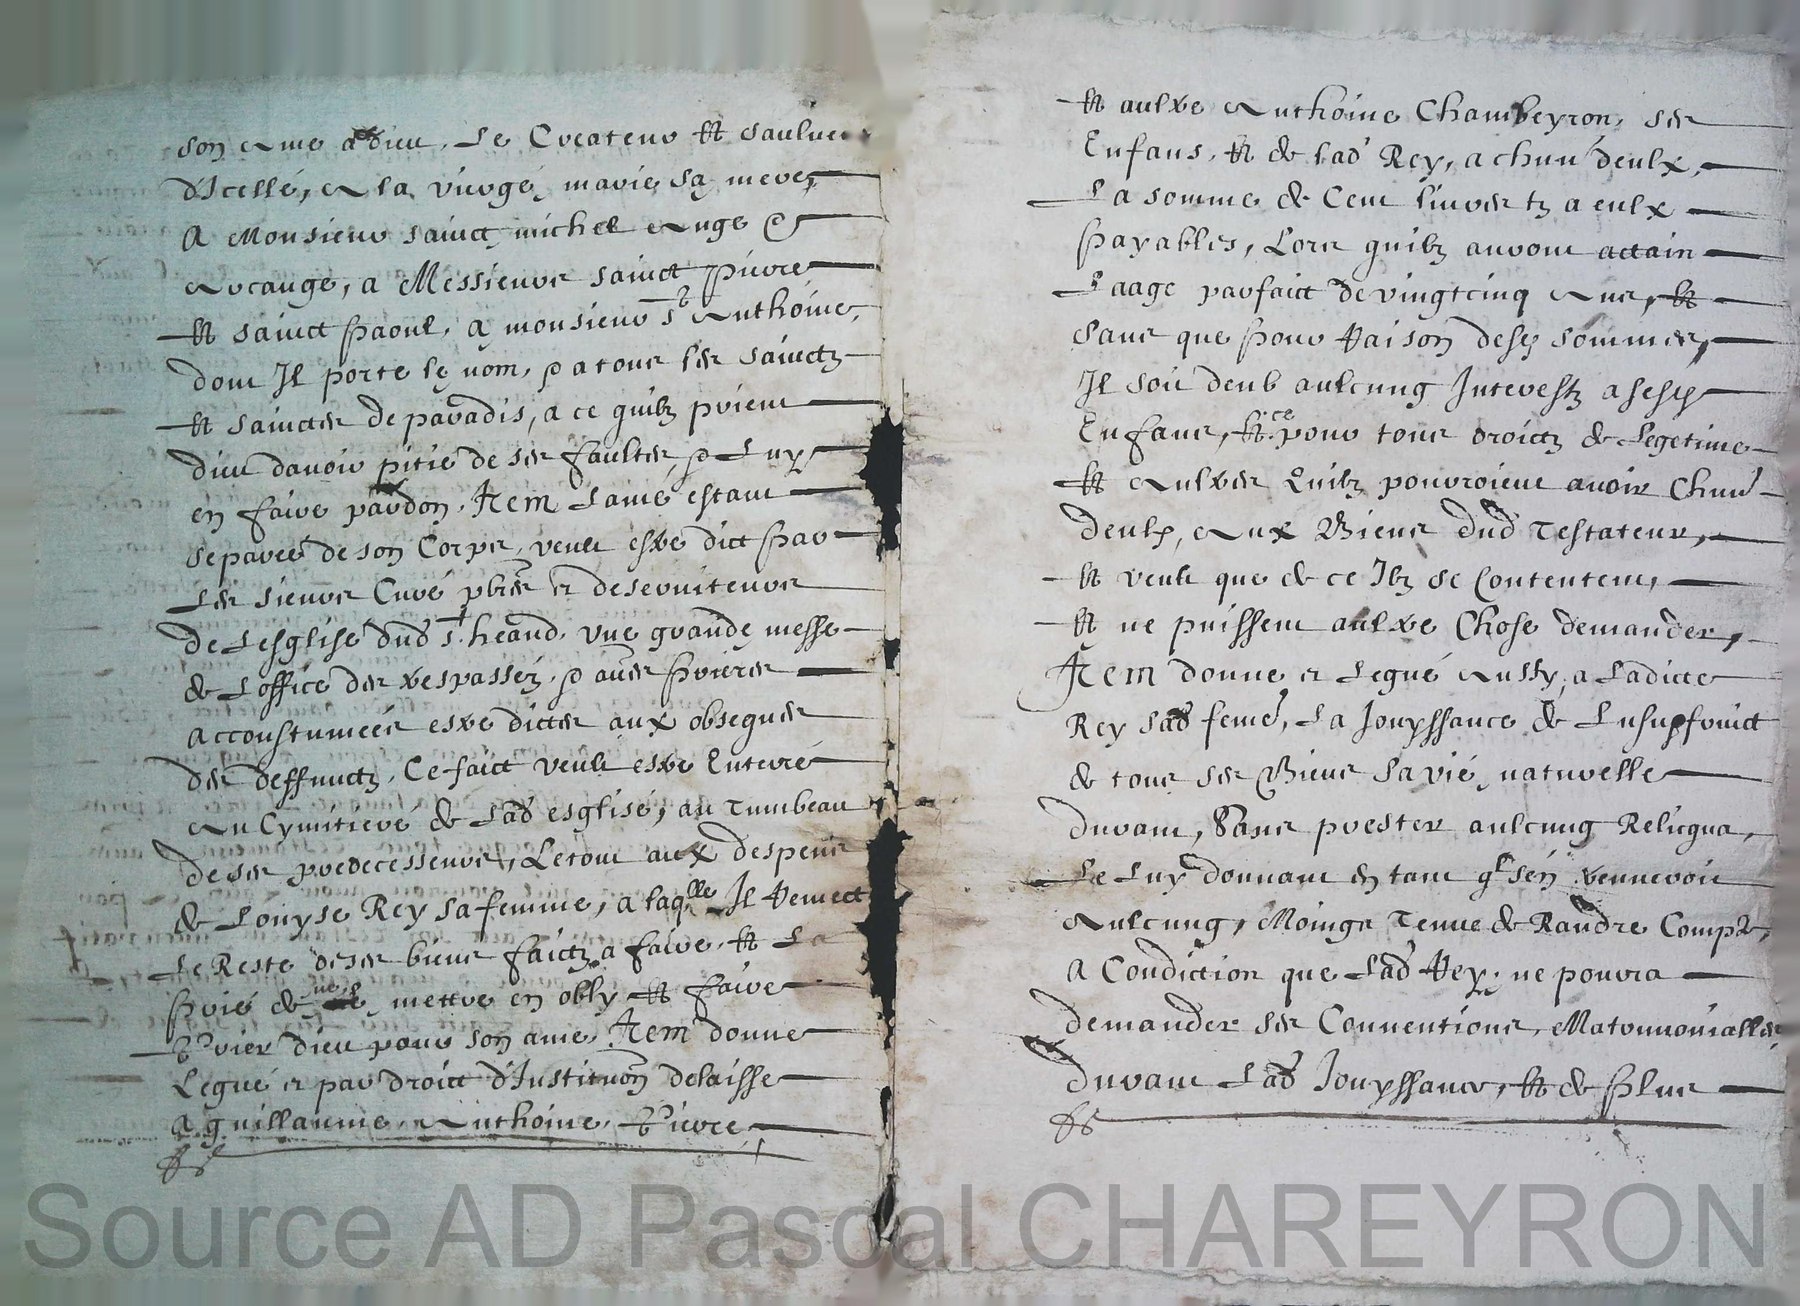 son ame a dieu, le Createur et saulueur
d'Icelle, a la vierge marie sa mere,
A Monsieur sainct michel Ange et
Archange, a Messieurs sainct pierre
et sainct paoul, a monsieur St Anthoine,
dont Il porte le nom, et a tous les sainctz
et sainctes de paradis, a ce quilz prient
dieu dauoir pitie de ses faultes, et luy
en faire pardon. Item lame estant
separee de son Corps, veult estre dict par
les sieurs Curé pbres et deseruiteurs
de lesglise dud St heand vne grande messe
& loffice des trespassez, et aues prieres
accoustumees estre dictes aux obseques
des deffunctz, Ce faict veult estre Enterré
Au Cymitiere de lad esglise, au Tumbeau
de ses predecesseurs, le tout aux despens
de Louyse Rey sa femme, a laqlle Il Remect
le Reste de ses biens faictz a faire, et la
prie de ne le mettre en obly et faire
prier dieu pour son ame Item donne
legue et par droict d'Institution delaisse
a guillaume, Anthoine, Pierre
et aultre Anthoine Chambeyron, ses
Enfans, et de lad Rey, a chun deulx,
la somme de Cent liures tz a eulx
payables, lors quilz auront attain
laage parfaict de vingtcinq ans, et
sans que pour Raison desd sommes,
Il soit deub aulcung Interestz a sesd
Enfans, et ce pour tous droictz de legetime
et Aultres quilz pourroient avoir Chun
deulx, Aux Biens dud Testateur,
et veult que de ce Ilz se Contentent,
et ne puissent aultre Chose demander,
Item donne et legue Aussy a ladicte
Rey sad feme, la Jouyssance & lusupfruict
de tous ses Biens sa vie naturelle
durant, sans prester aulcung Reliqua,
le luy donnant en tant ql sen treuueroit
Aulcung, Moings Tenue de Randre Compte,
A Condiction que lad Rey ne pourra
demander ses Conuentions Matrimonialles
durant lad Jouyssance, et de plus
Source AD Pascal CHAREYRON